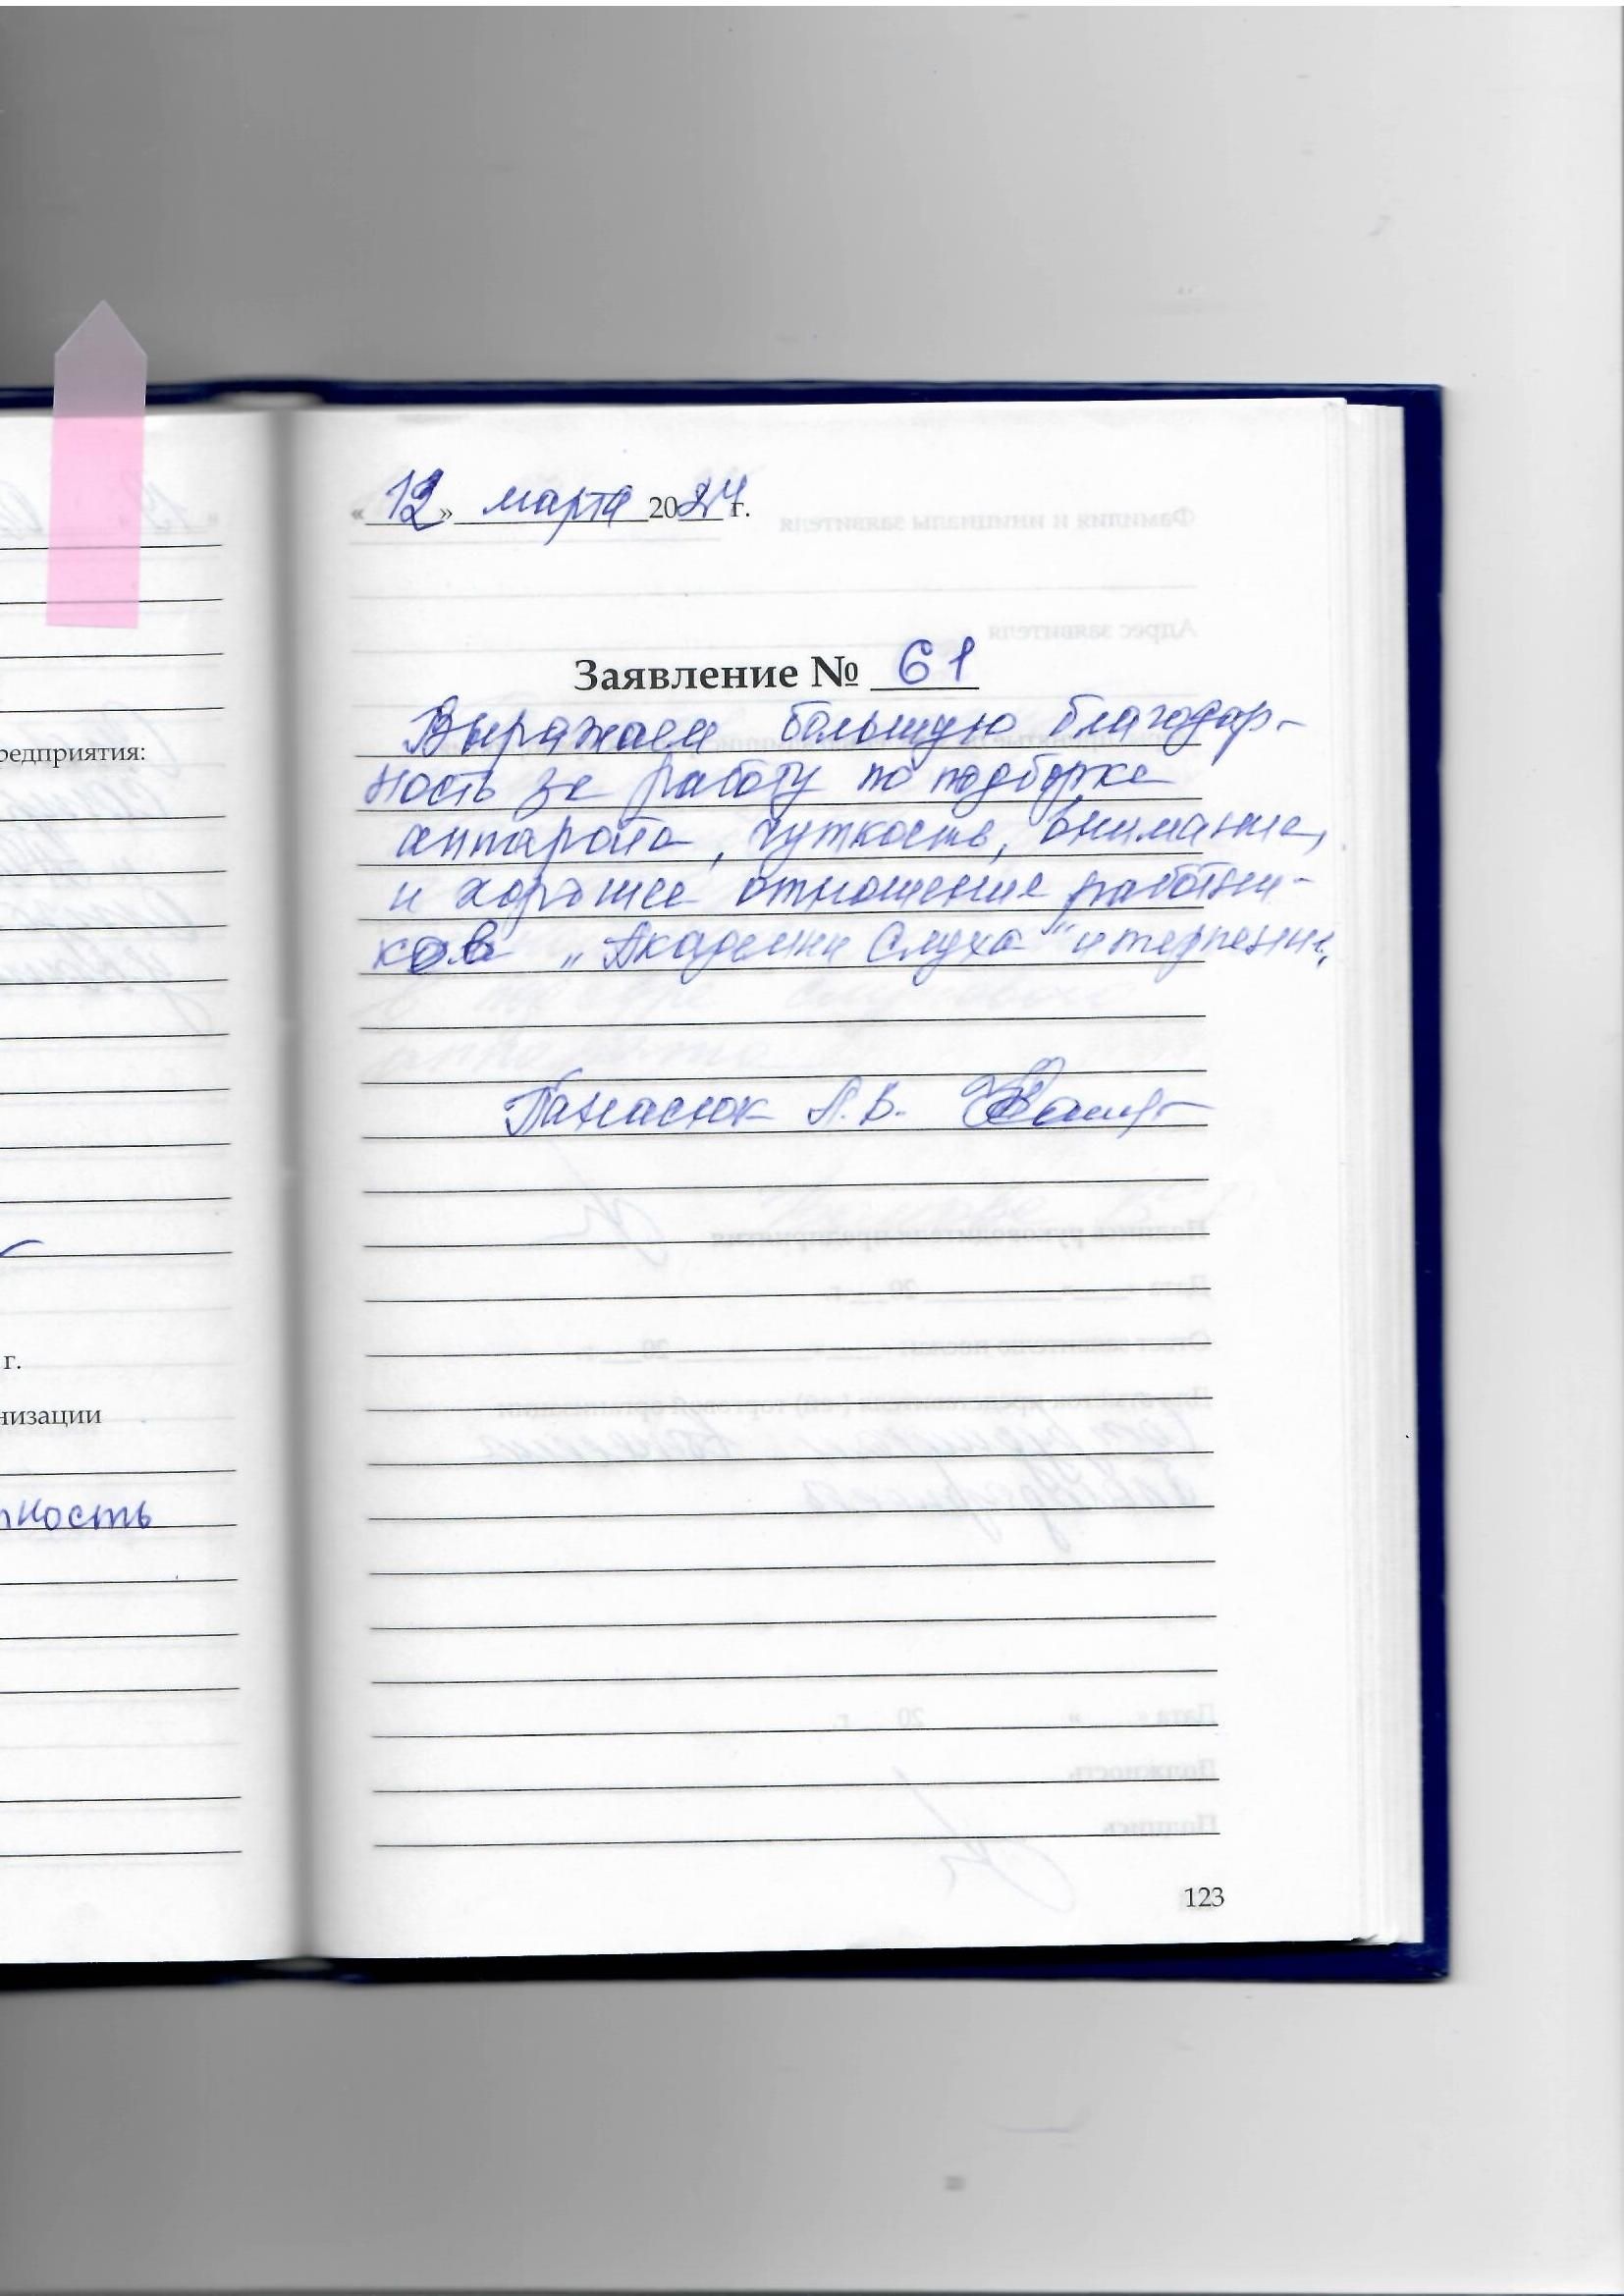 «12» марта 2024 г.
Заявление № 61
Выражаем большую благодар-
ность за работу по подборке
аппарата, чуткость, внимание,
и хорошее отношение работни-
ков „Академии Слуха" и терпение.
Панасюк А.В.
123
редприятия:
г.
низации
ность